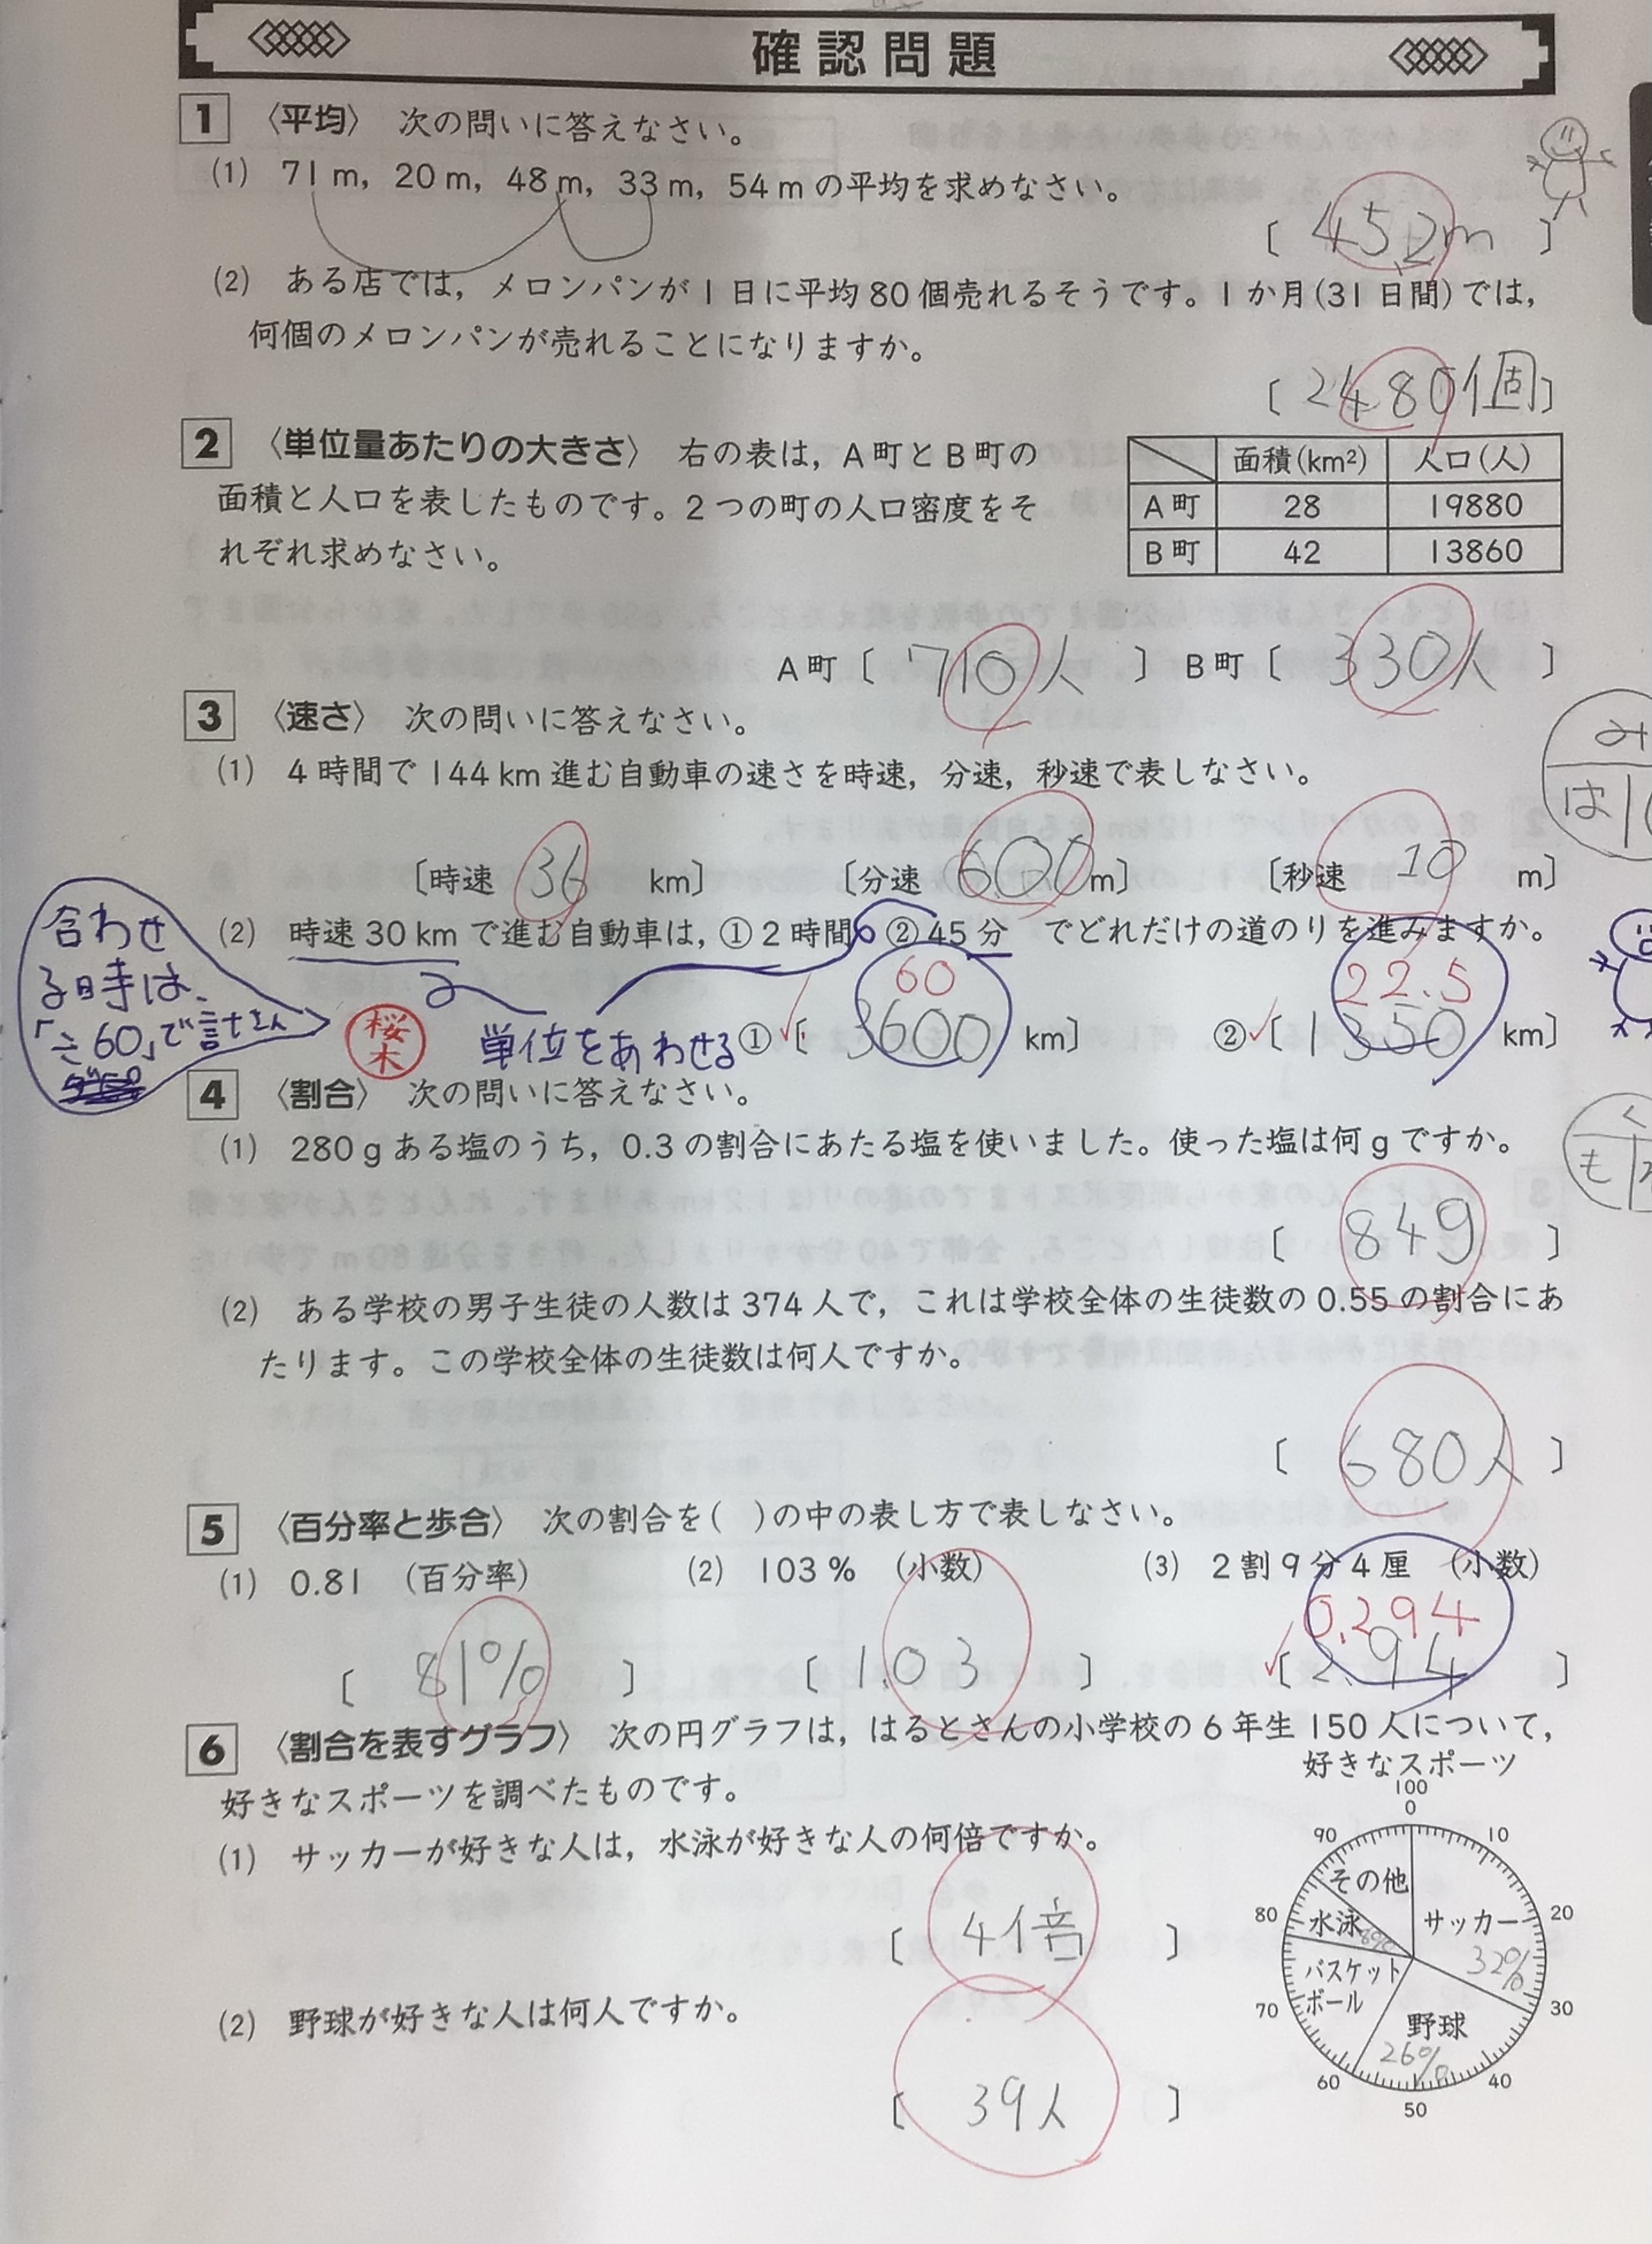 確認問題
1 〈平均〉 次の問いに答えなさい。
(1) 71m, 20m, 48m, 33m, 54mの平均を求めなさい。
〔 45.2m 〕
(2) ある店では, メロンパンが1日に平均80個売れるそうです。1か月(31日間)では,
何個のメロンパンが売れることになりますか。
〔 2480個 〕
2 〈単位量あたりの大きさ〉 右の表は, A町とB町の
面積と人口を表したものです。2つの町の人口密度をそ
れぞれ求めなさい。
面積(km²) 人口(人)
A町 28 19880
B町 42 13860
A町〔 710人 〕 B町〔 330人 〕
3 〈速さ〉 次の問いに答えなさい。
(1) 4時間で144km進む自動車の速さを時速, 分速, 秒速で表しなさい。
み
は
〔時速 36 km〕 〔分速 600m〕 〔秒速 10 m〕
(2) 時速30kmで進む自動車は, ①2時間 ②45分 でどれだけの道のりを進みますか。
合わせ
る時は、
「÷60」で計さん
桜木
単位をあわせる
60
22.5
①〔 3600 km〕 ②〔 1350 km〕
4 〈割合〉 次の問いに答えなさい。
(1) 280gある塩のうち, 0.3の割合にあたる塩を使いました。使った塩は何gですか。
く
も
〔 84g 〕
(2) ある学校の男子生徒の人数は374人で, これは学校全体の生徒数の0.55の割合にあ
たります。この学校全体の生徒数は何人ですか。
〔 680人 〕
5 〈百分率と歩合〉 次の割合を( )の中の表し方で表しなさい。
(1) 0.81 (百分率) (2) 103% (小数) (3) 2割9分4厘 (小数)
0.294
〔 81% 〕 〔 1.03 〕 〔 2.94 〕
6 〈割合を表すグラフ〉 次の円グラフは, はるとさんの小学校の6年生150人について,
好きなスポーツを調べたものです。
(1) サッカーが好きな人は, 水泳が好きな人の何倍ですか。
〔 4倍 〕
(2) 野球が好きな人は何人ですか。
〔 39人 〕
好きなスポーツ
100
0
90 10
その他
80 20
水泳 8% サッカー
32%
バスケット
ボール
70 30
野球
26%
60 40
50